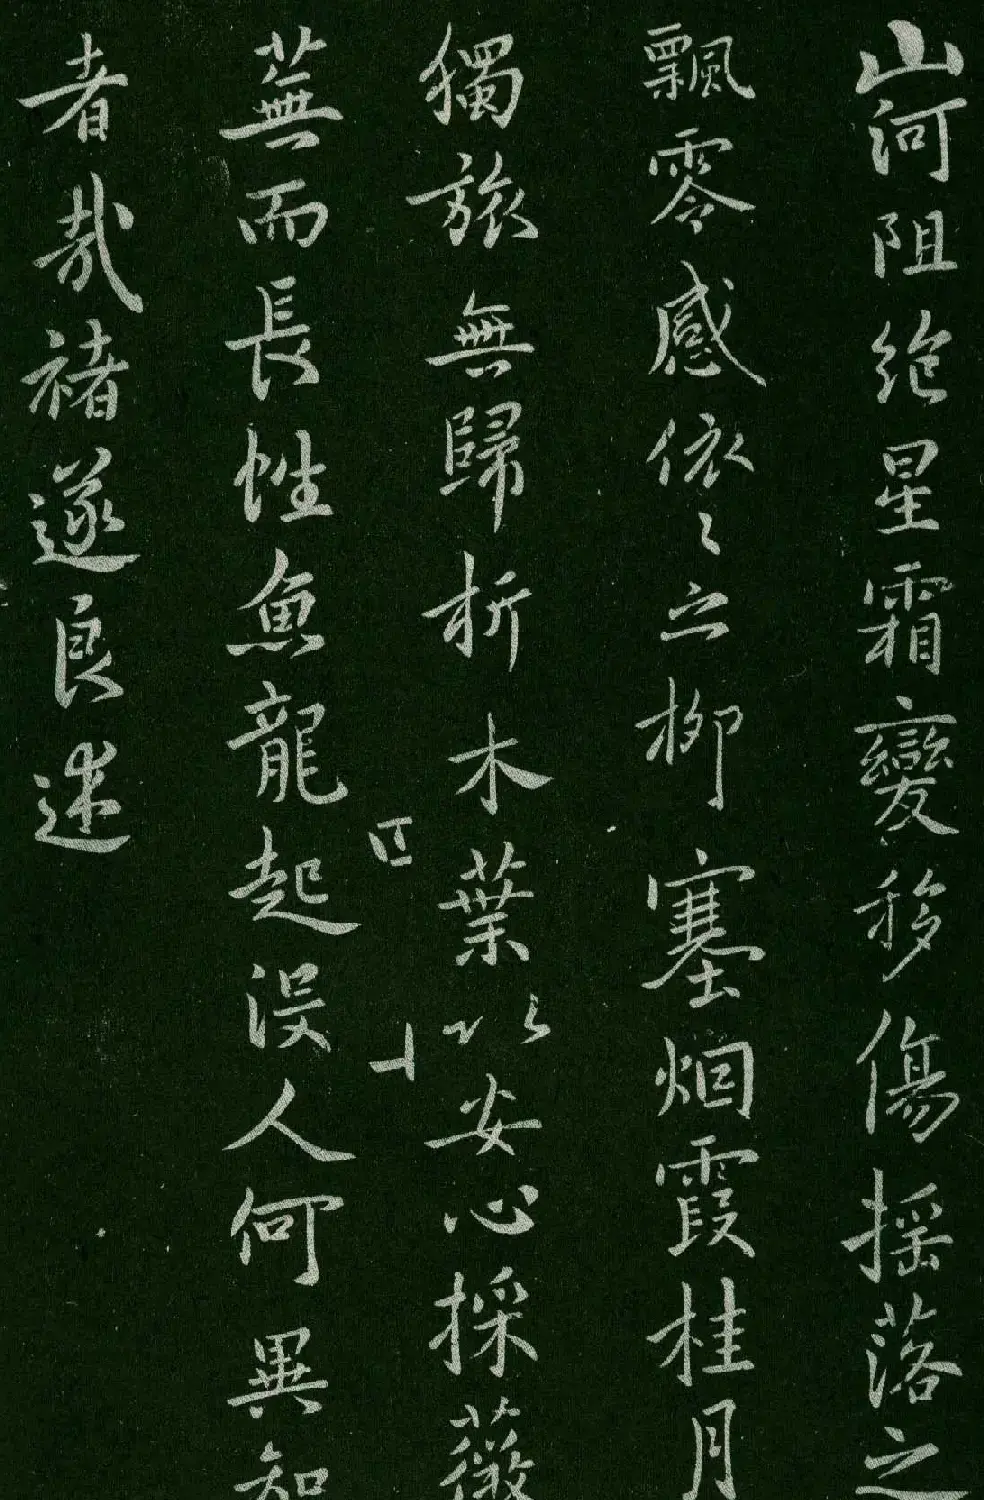 山河阻絶星霜變移傷摇落之
飄零感依〻之柳塞烟霞桂月
獨旅無歸折木葉以安心採薇
蕪而長性魚龍起没人何異知
者哉褚遂良述